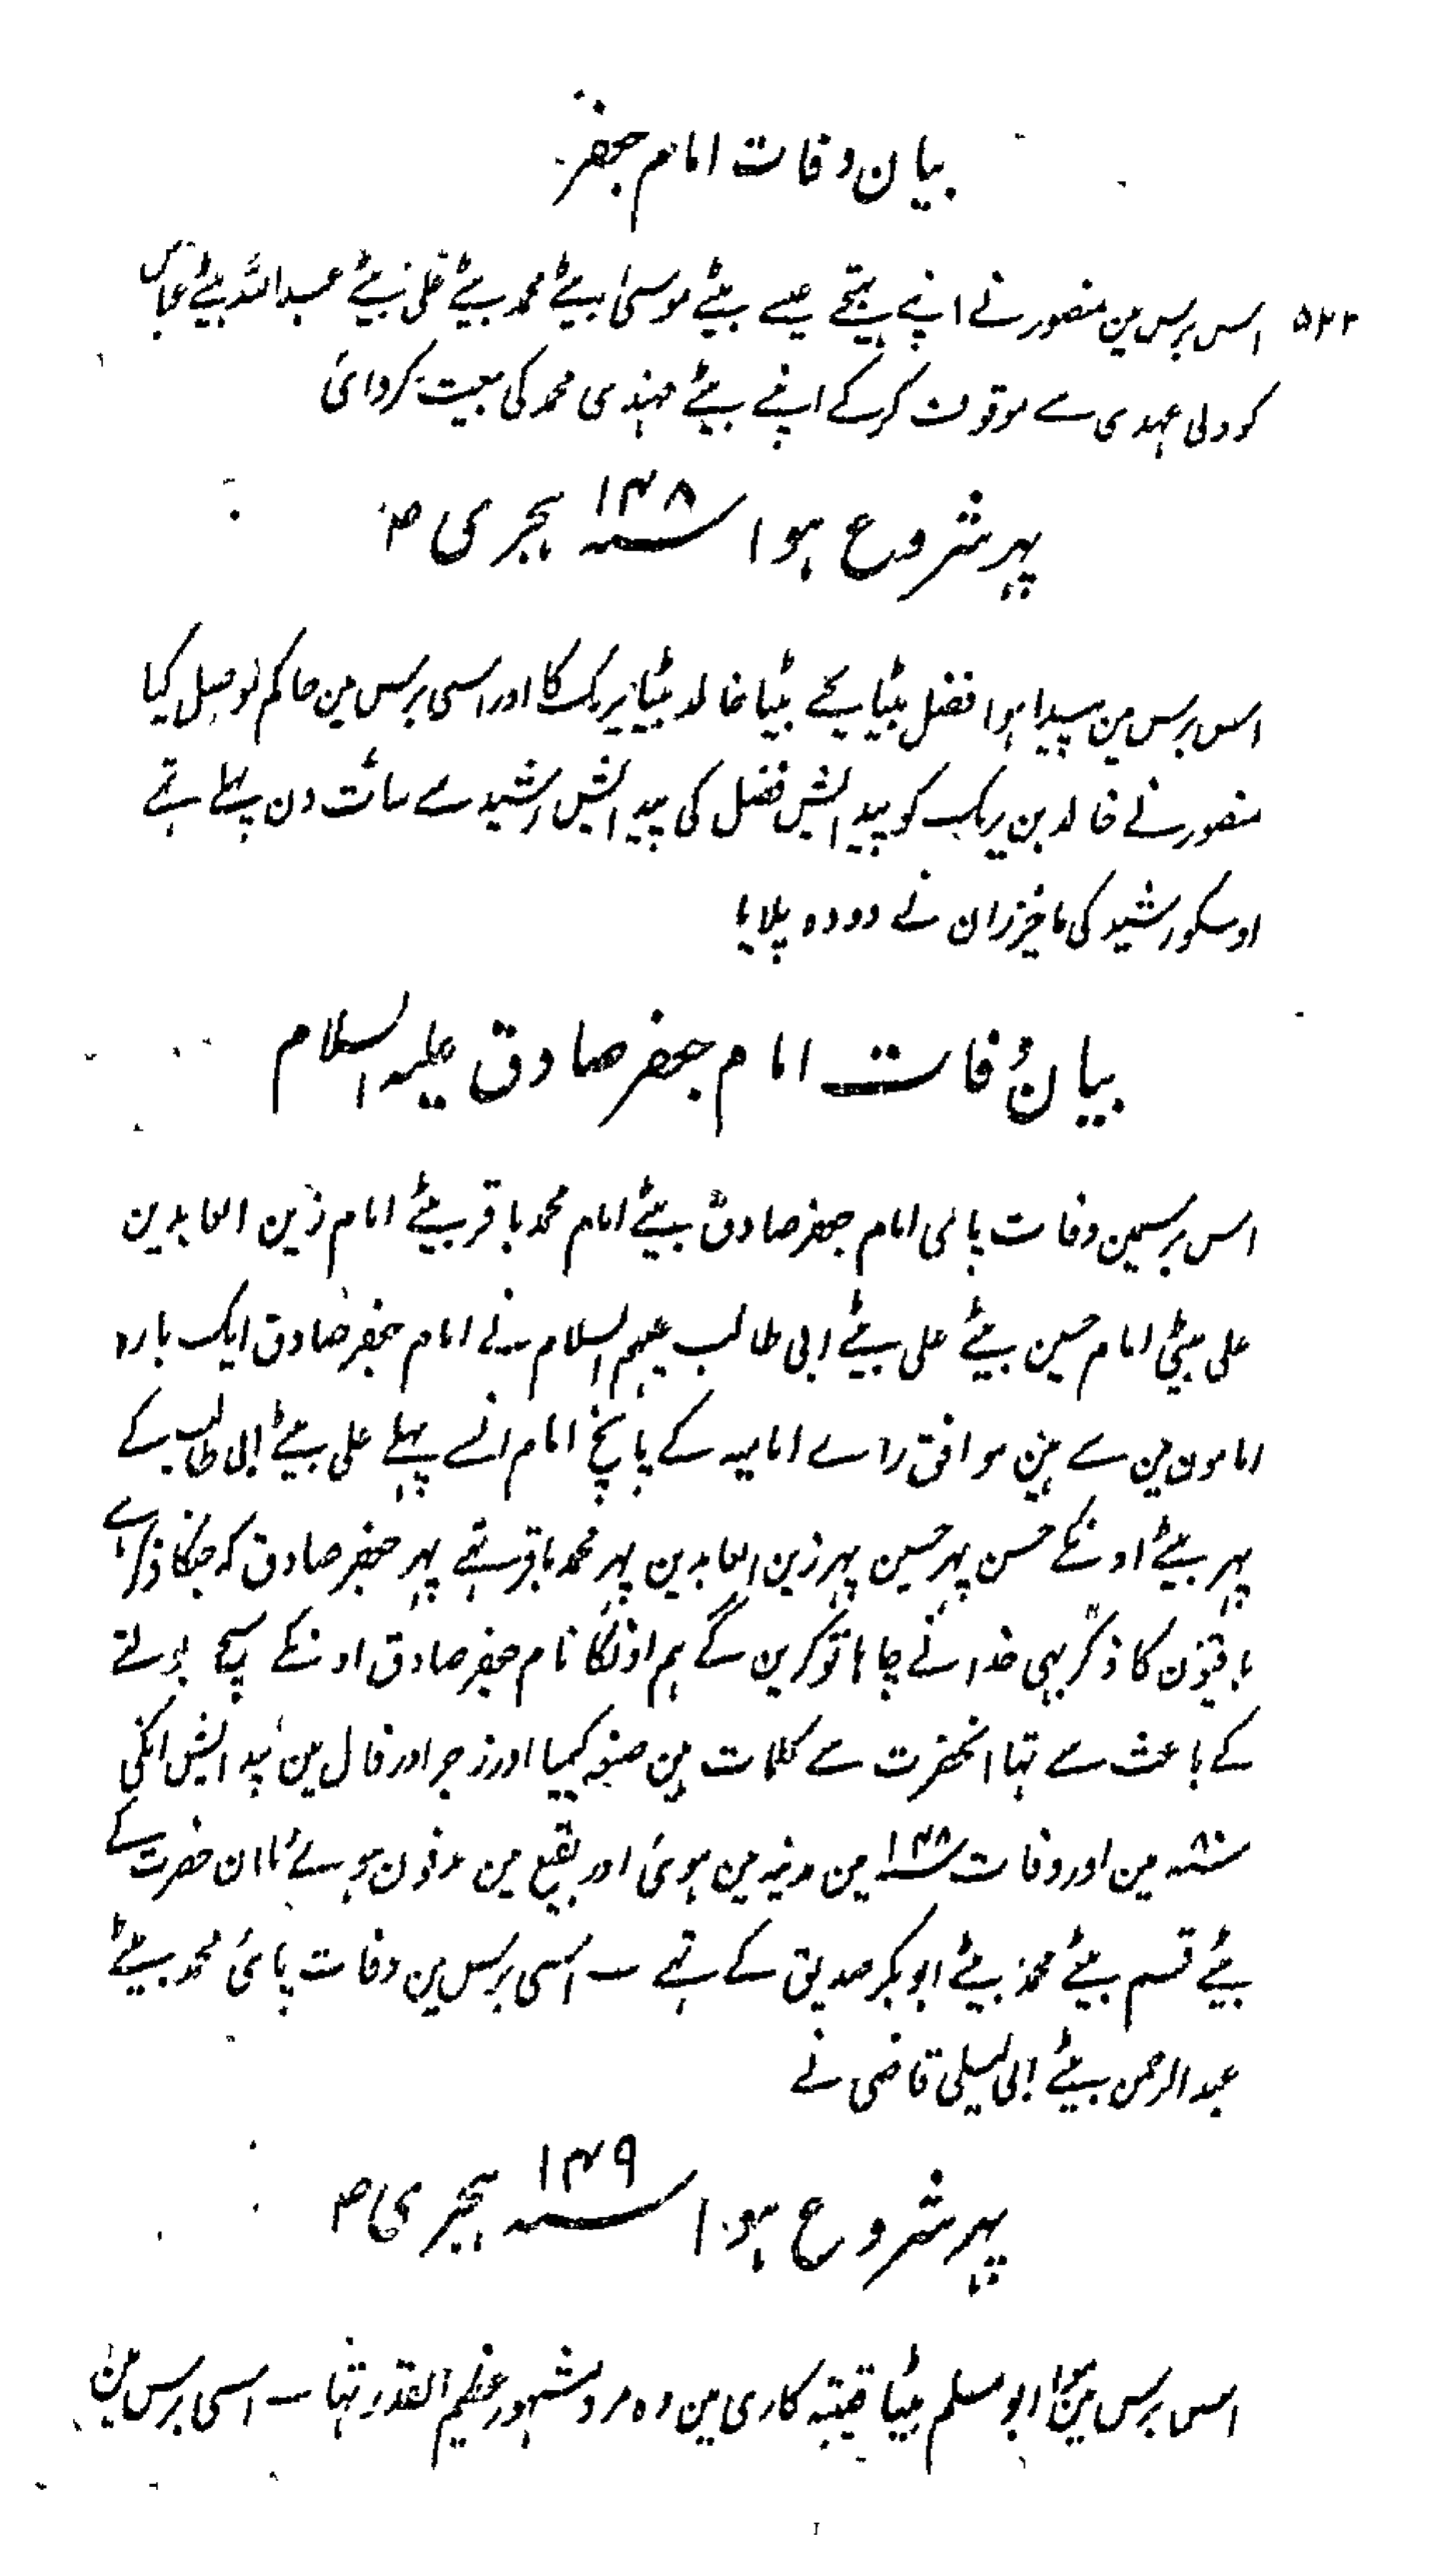 بیان وفات امام جعفر
۵۲۲ اس برس مین منصور نے اپنے بہتیجے عیسے بیٹے موسیٰ بیٹے محمد بیٹے علی بیٹے عبد اللہ بیٹے عباس
کو ولی عہدی سے موقوف کرکے اپنے بیٹے مہندی محمد کی بیعت کروائی
پہر شروع ہوا سنہ ۱۴۸ ہجری م
اس برس مین پیدا ہوا فضل بیٹا یحے بیٹا خالد بیٹا برمک کا اور اسی برس مین حاکم موصل کیا
منصور نے خالد بن برمک کو پیدایش فضل کی پیدایش رشید سے سات دن پہلے ہے
اوسکو رشید کی ما خیزران نے دودہ پلایا
بیان وفات امام جعفر صادق علیہ السلام
اس برسمین وفات پائی امام جعفر صادق بیٹے امام محمد باقر بیٹے امام زین العابدین
علی بیٹی امام حسین بیٹے علی بیٹے ابی طالب علیہم السلام نے امام جعفر صادق ایک بارہ
امامون مین سے ہین موافق راے امامیہ کے پانچ امام انسے پہلے علی بیٹے ابی طالب کے
پہر بیٹے اونکے حسن پہر حسین پہر زین العابدین پہر محمد باقر تہے پہر جعفر صادق کہ جنکا ذکر ہے
باقیون کا ذکر بہی خدا نے چاہا تو کرین گے ہم اونکا نام جعفر صادق اونکے سچ بولنے
کے باعث سے تہا انحضرت سے کلمات ہین صنعہ کیمیا اور زجر اور فال مین پیدایش انکی
سنہ ۸۰ مین اور وفات سنہ ۱۴۸ مین مدینہ مین ہوئی اور بقیع مین مدفون ہوئے ماان حضرت کے
بیٹے قسم بیٹے محمد بیٹے ابوبکر صدیق کے تہے ۔ اسی برس مین وفات پائی محمد بیٹے
عبدالرحمن بیٹے ابی لیلی قاضی نے
پہر شروع ہوا سنہ ۱۴۹ ہجری م
اس برس مین ابو مسلم بیٹا قتیبہ کا ری مین وہ مرد مشہور عظیم القدر تہا ۔ اسی برس مین